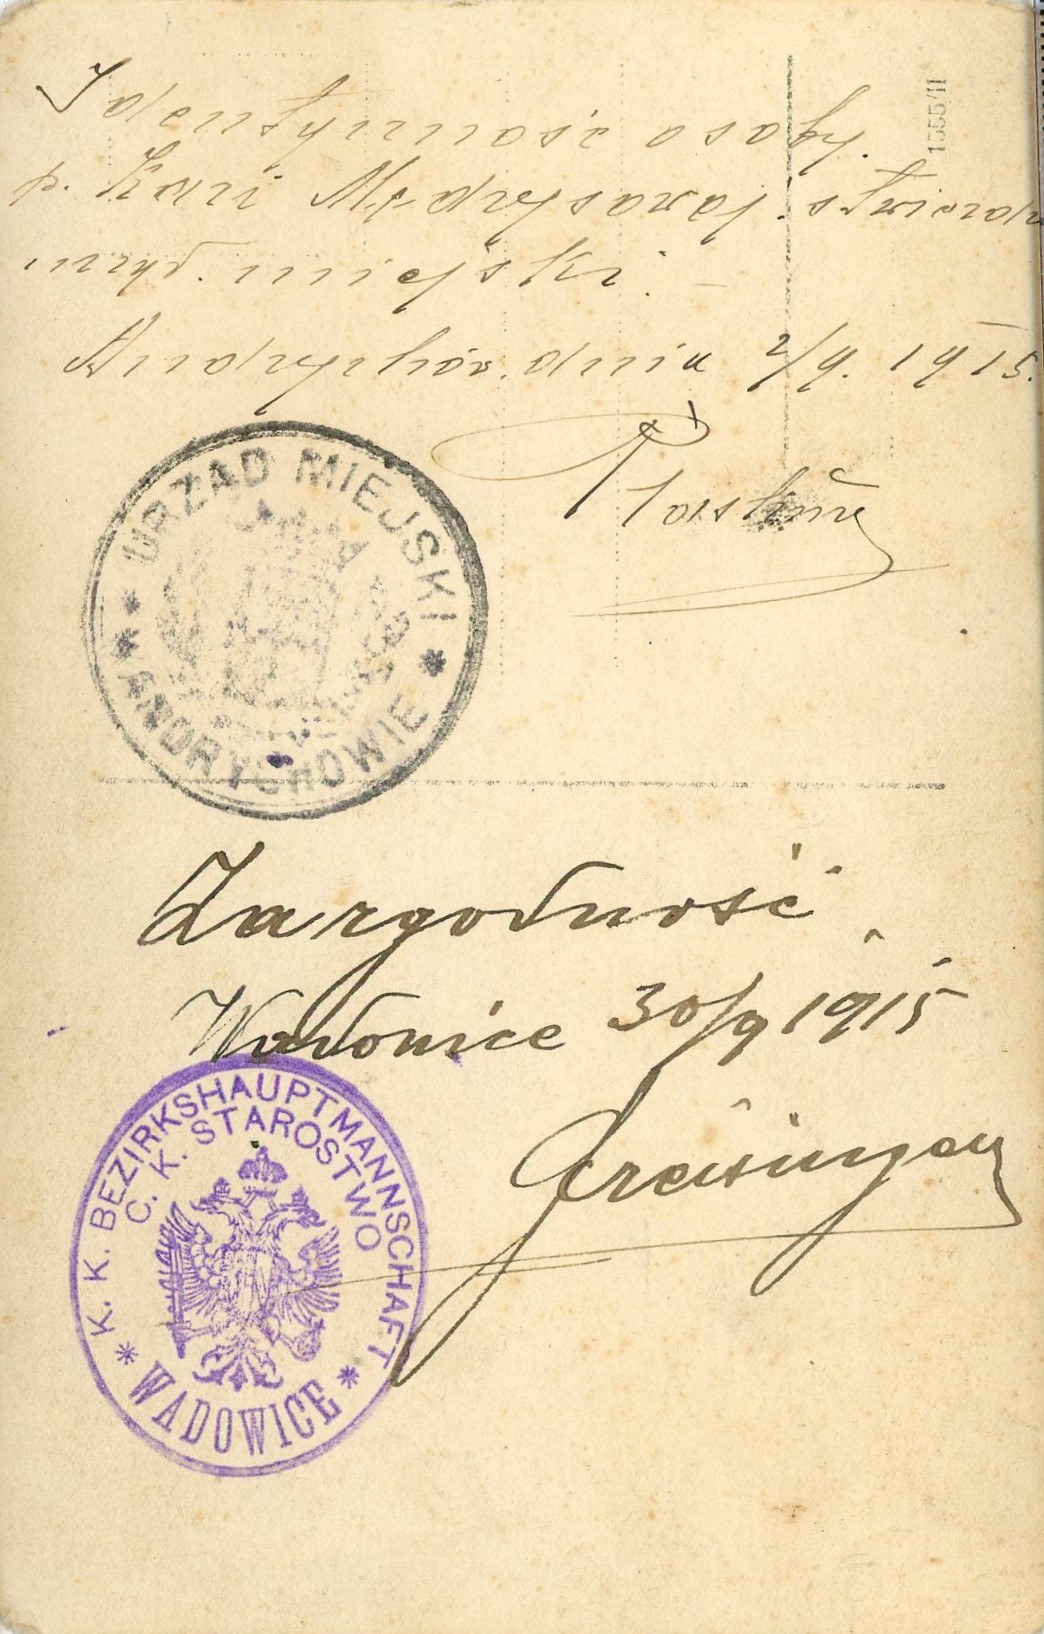 Identyczność osoby
p. Karii stwierdza
urząd miejski. –
Andrychów, dnia 2/9. 1915.
1555/II
URZĄD MIEJSKI
* W ANDRYCHOWIE *
Za zgodność
Wadowice 30/9 1915
K. K. BEZIRKSHAUPTMANNSCHAFT
C. K. STAROSTWO
* WADOWICE *